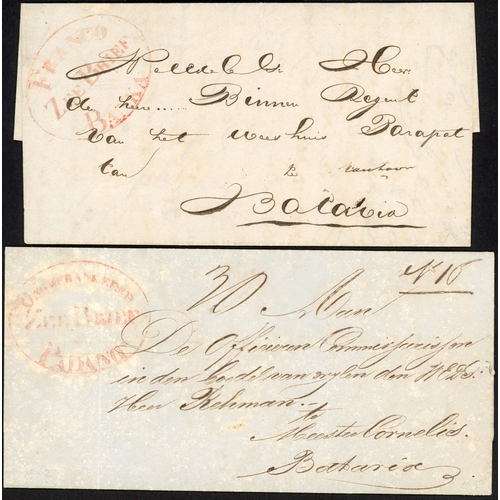 FRANCO
ZEE BRIEF
BANDA
Weledele Hr Heer
de heer...... Binnen Regent
van het weeshuis Parapat
tan te
Batavia
ONGEFRANKEERD
Zee Brief
PADANG
30 No 16
Aan
De Officieren Commissarissen
in den boedel van wylen den WEDs:
Heer Rehman.
te
Meester Cornelis.
Batavia